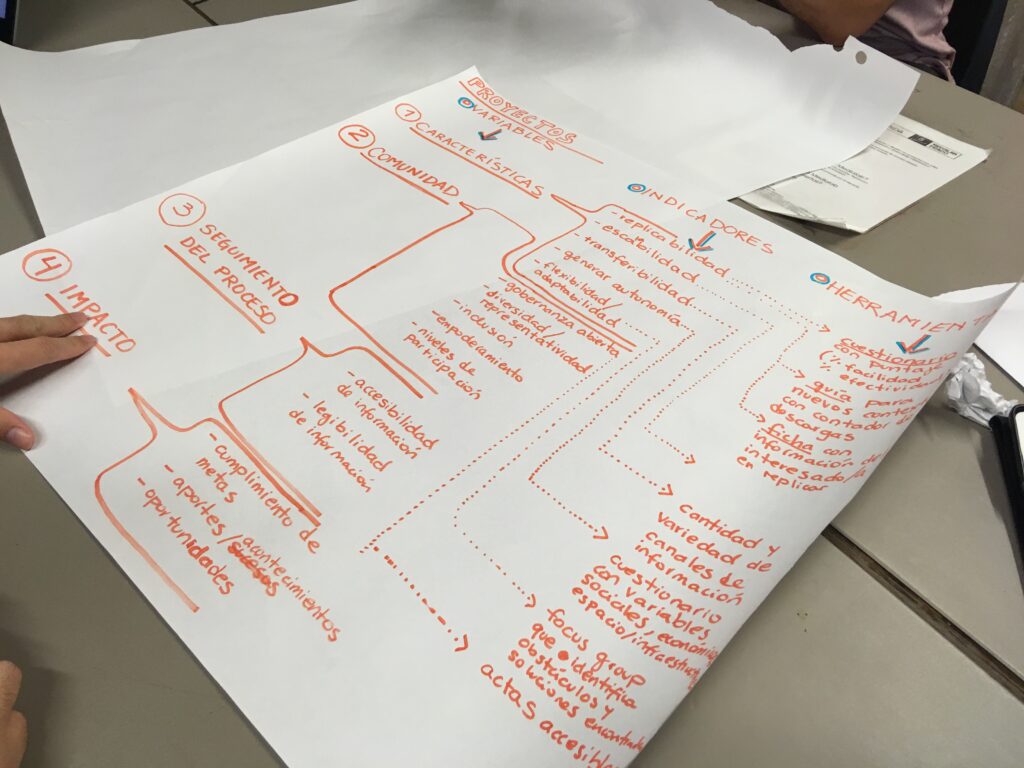 PROYECTOS
VARIABLES
① CARACTERÍSTICAS
② COMUNIDAD
③ SEGUIMIENTO
DEL PROCESO
④ IMPACTO
INDICADORES
- replicabilidad
- escalibilidad
- transferibilidad
- generar autonomía
- flexibilidad/
adaptabilidad
- gobernanza abierta
- diversidad/
representatividad
- inclusión
- empoderamiento
- niveles de
participación
- accesibilidad
de información
- legibilidad
de información
- cumplimiento de
metas
- aportes/acontecimientos
- oportunidades
HERRAMIENT
cuestionario
con puntaje
(% facilidad
% efectivi
guía para
nuevos conte
con contador
descargas
ficha con
información del
interesado/a
en replicar
cantidad y
variedad de
canales de
información
cuestionario
con variables
sociales/económic
espacio/infraestru
focus group
que identifica
obstáculos y
soluciones encontrad
actas accesibles